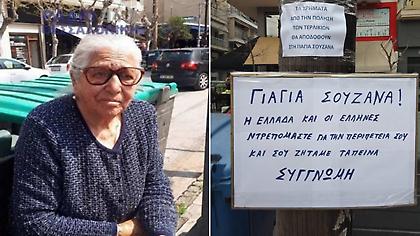 ΤΑ ΧΡΗΜΑΤΑ
ΑΠΟ ΤΗΝ ΠΩΛΗΣΗ
ΤΩΝ ΤΕΡΛΙΚΙΩΝ
ΘΑ ΑΠΟΔΟΘΟΥΝ
ΣΤΗ ΓΙΑΓΙΑ ΣΟΥΖΑΝΑ
ΓΙΑΓΙΑ ΣΟΥΖΑΝΑ!
Η ΕΛΛΑΔΑ ΚΑΙ ΟΙ ΕΛΛΗΝΕΣ
ΝΤΡΕΠΟΜΑΣΤΕ ΓΙΑ ΤΗΝ ΠΕΡΙΠΕΤΕΙΑ ΣΟΥ
ΚΑΙ ΣΟΥ ΖΗΤΑΜΕ ΤΑΠΕΙΝΑ
ΣΥΓΓΝΩΜΗ